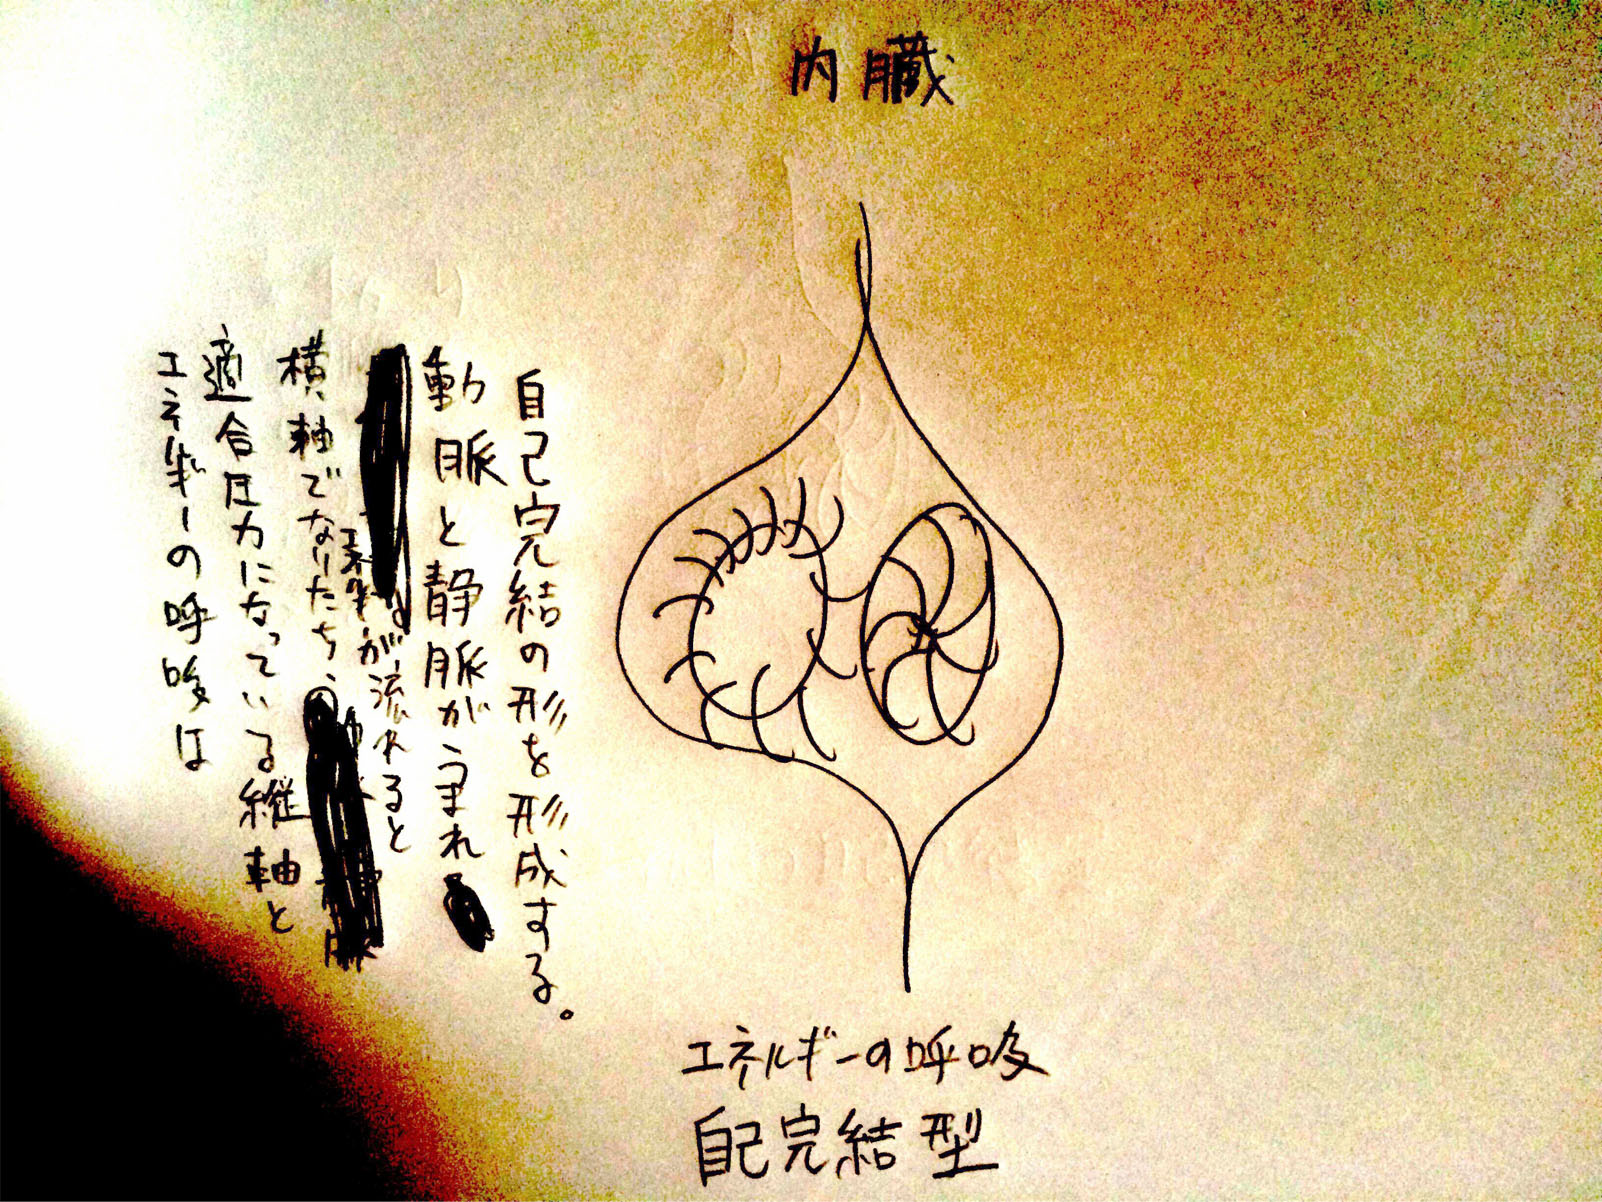 内臓
エネルギーの呼吸は
適合圧力になっている縦軸と
横軸でなりたち、
エネルギーが流れると
動脈と静脈がうまれ
自己完結の形を形成する。
エネルギーの呼吸
自己完結型